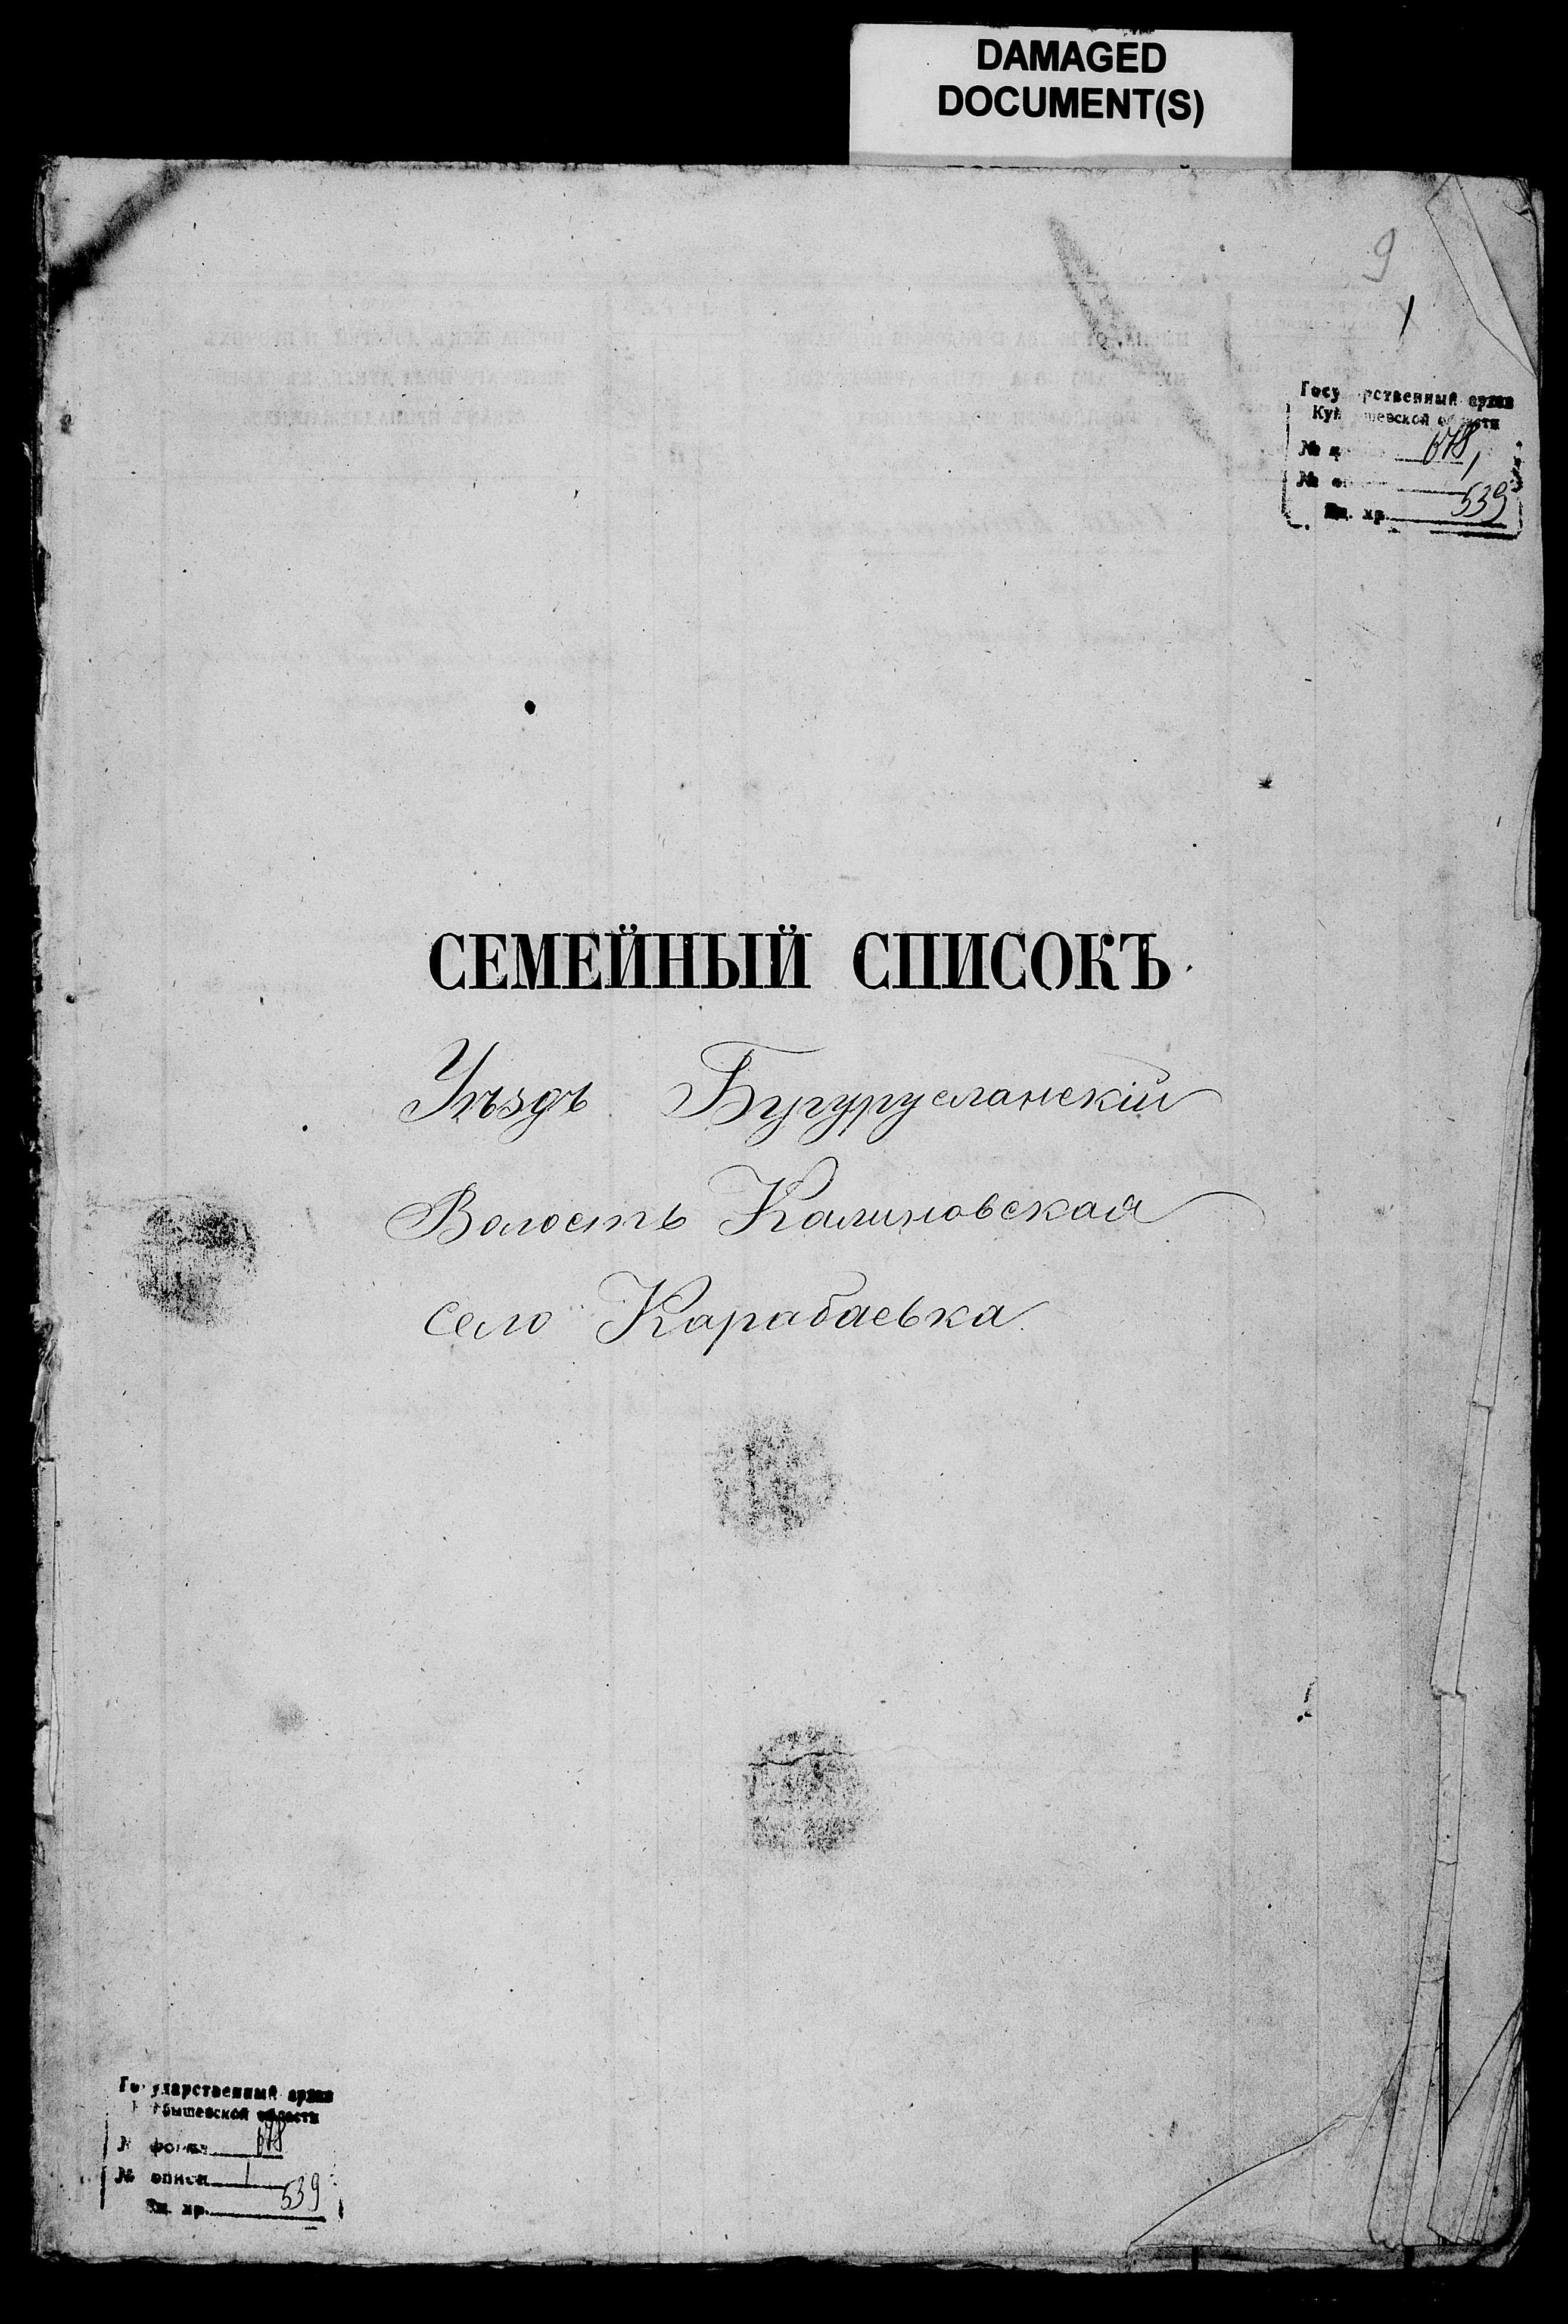 DAMAGED
DOCUMENT(S)
9
1
Государственный архив
Куйбышевской области
№ 678
№ 1
Ед. хр. 539
СЕМЕЙНЫЙ СПИСОКЪ
Уѣздъ Бугурусланскій
Волость Калиновская
село Карабаевка
Государственный архив
Куйбышевской области
№ фонда 678
№ описи 1
Ед. хр. 539